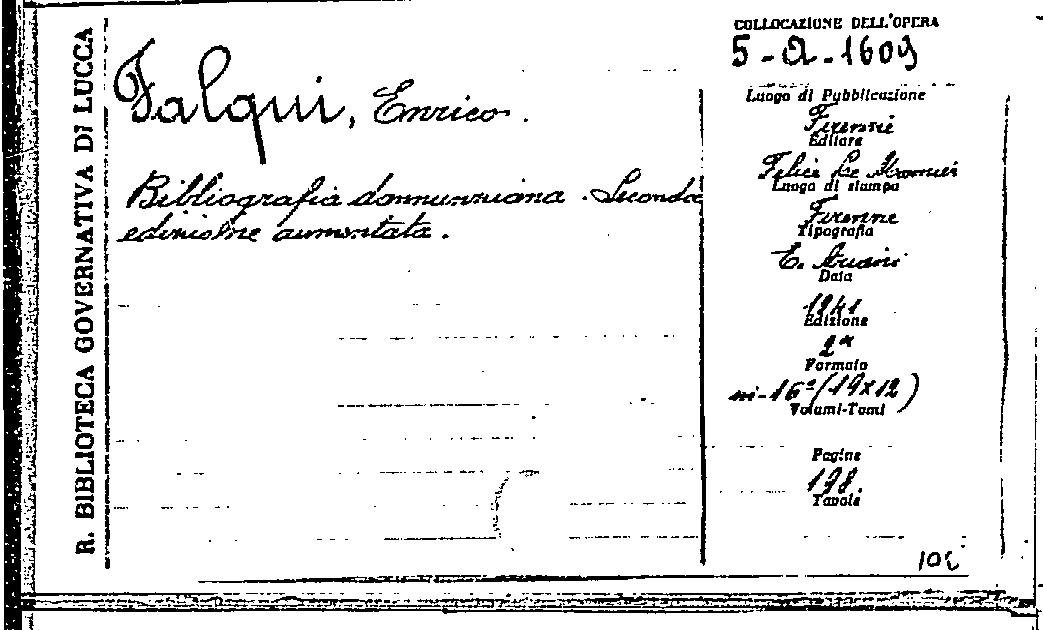 R. BIBLIOTECA GOVERNATIVA DI LUCCA
Falqui, Enrico.
Bibliografia dannunziana. Seconda
edizione aumentata.
COLLOCAZIONE DELL'OPERA
5-a-1609
Luogo di Pubblicazione
Firenze
Editore
Felice Le Monnier
Luogo di stampa
Firenze
Tipografia
E. Ariani
Data
1941
Edizione
2ª
Formato
in-16°(19x12)
Volumi-Tomi
Pagine
198.
Tavole